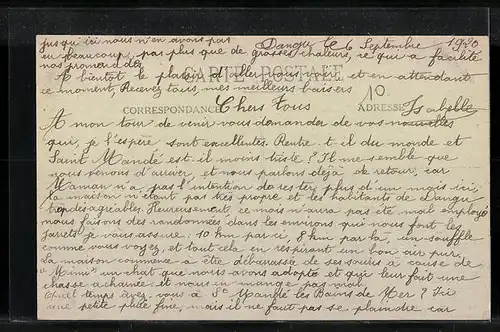 jusqu'ici nous n'en avons pas Dangu le 6 Septembre 1920
eu beaucoup, pas plus que de grosses chaleurs, ce qui a facilité
nos promenades.
A bientôt le plaisir d'aller vous voir et en attendant
ce moment, Recevez tous, mes meilleurs baisers
CARTE POSTALE
10.
CORRESPONDANCE Chers tous ADRESSE Isabelle
A mon tour de venir vous demander de vos nouvelles
qui, je l'espère sont excellentes. Rentre-t-il du monde et
Saint Mandé est-il moins triste? Il me semble que
nous venons d'arriver, et nous parlons déjà de retour, car
Maman n'a pas l'intention de rester plus d'un mois ici,
la maison n'étant pas très propre et les habitants de Dangu
trop désagréables. Heureusement, ce mois n'aura pas été mal employé
nous faisons des randonnées dans les environs qui nous font les
jarrets je vous assure. 10 km par ci, 8 km par là, un souffle
comme vous voyez, et tout cela en respirant un bon air pur.
La maison commence à être débarrassée de ses souris à cause de
"Mimi" un chat que nous avons adopté et qui leur fait une
chasse acharnée et nous en mange pas mal.
Quel temps avez-vous à St Mandé les Bains de Mer? Ici
une petite pluie fine, mais il ne faut pas se plaindre car